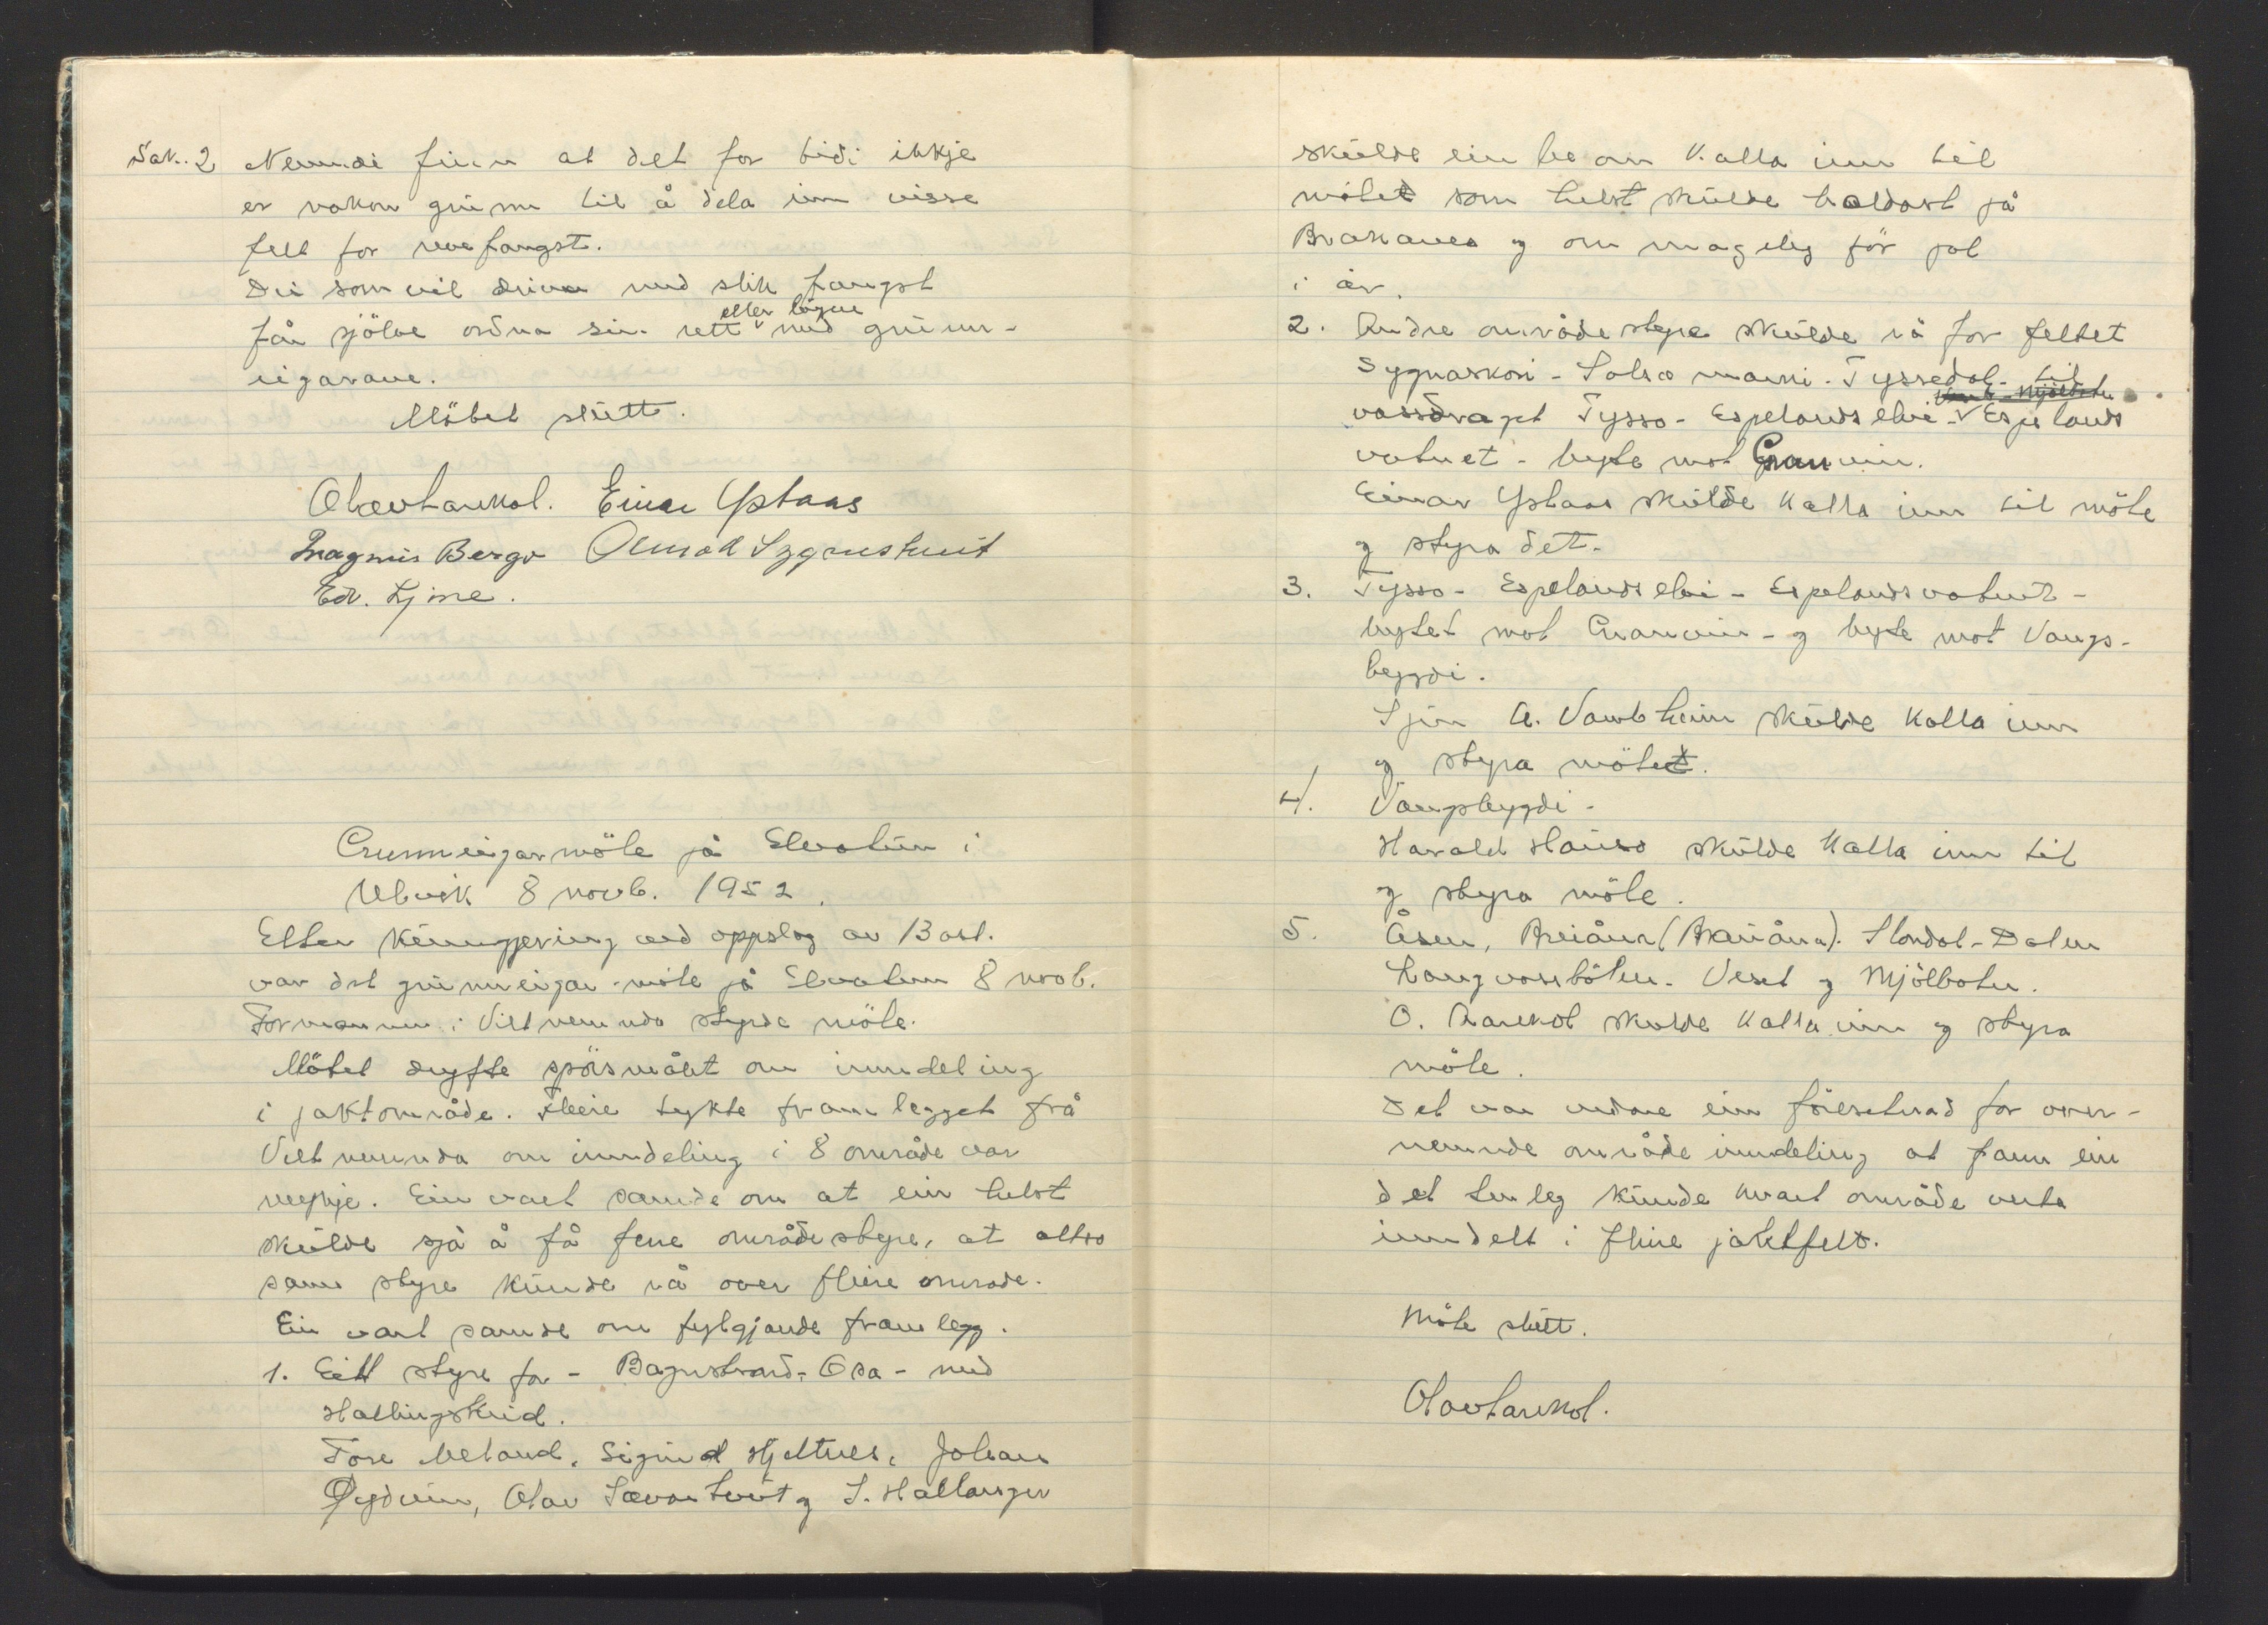 Sak. 2 Nemndi finn at det for tidi ikkje
er nokon grunn til å dela inn visse
felt for revefangst.
Dei som vil driva med slik fangst
eller løyve
får sjölve ordna sin rett med grunn-
eigarane.
Mötet slutt.
Olav Haukol. Einar Ystaas
Magnus Bergo Olmod Sygnestveit
Ed. Ljone.
Grunneigarmöte på Elvatun i
Ulvik 8 novb. 1952.
Etter kunngjering ved oppslag av 13 okt.
var det grunneigar-möte på Elvatun 8 novb.
Formannen i Viltnemnda styrde möte.
Mötet dryfte spörsmålet om inndeling
i jaktområde. Fleire tykte framlegget frå
Viltnemnda om inndeling i 8 område var
mykje. Ein vart samde om at ein helst
skulde sjå å få færre områdestyre, at altso
same styre kunde rå over fleire område.
Ein vart samde om fylgjande framlegg.
1. Eitt styre for - Bagnstrond - Osa - med
Hallingskeid.
Tore Meland, Sigurd Hjeltnes, Johan
Øydvin, Olav Sævartveit og S. Hallanger
skulde ein be om kalla inn til
mötet som helst skulde haldast på
Brakanes og om mogeleg för jol
i år.
2. Andre områdestyre skulde rå for feltet
Sygnaskori - Solsæ marki - Tyssedal - til
vassdraget Tysso - Espelandselvi - Espelands
vatnet - byte mot Granvin.
Einar Ystaas skulde kalla inn til möte
og styra det.
3. Tysso - Espelandselvi - Espelandsvatnet -
bytet mot Granvin - og byte mot Vangs-
bygdi.
Sjur A. Vambheim skulde kalla inn
og styra mötet.
4. Vangsbygdi -
Harald Hauso skulde kalla inn til
og styra möte.
5. Åsen, Breiåna (Brauåna). Slondal - Dalen
Langvassbötn. Veset og Mjölbotn.
O. Haukol skulde kalla inn og styra
möte.
Det var vedare ein föresetnad for over-
nemnde område inndeling at fann ein
det tenleg kunde kvart område verta
inndelt i fleire jaktfelt.
Möte slutt.
Olav Haukol.